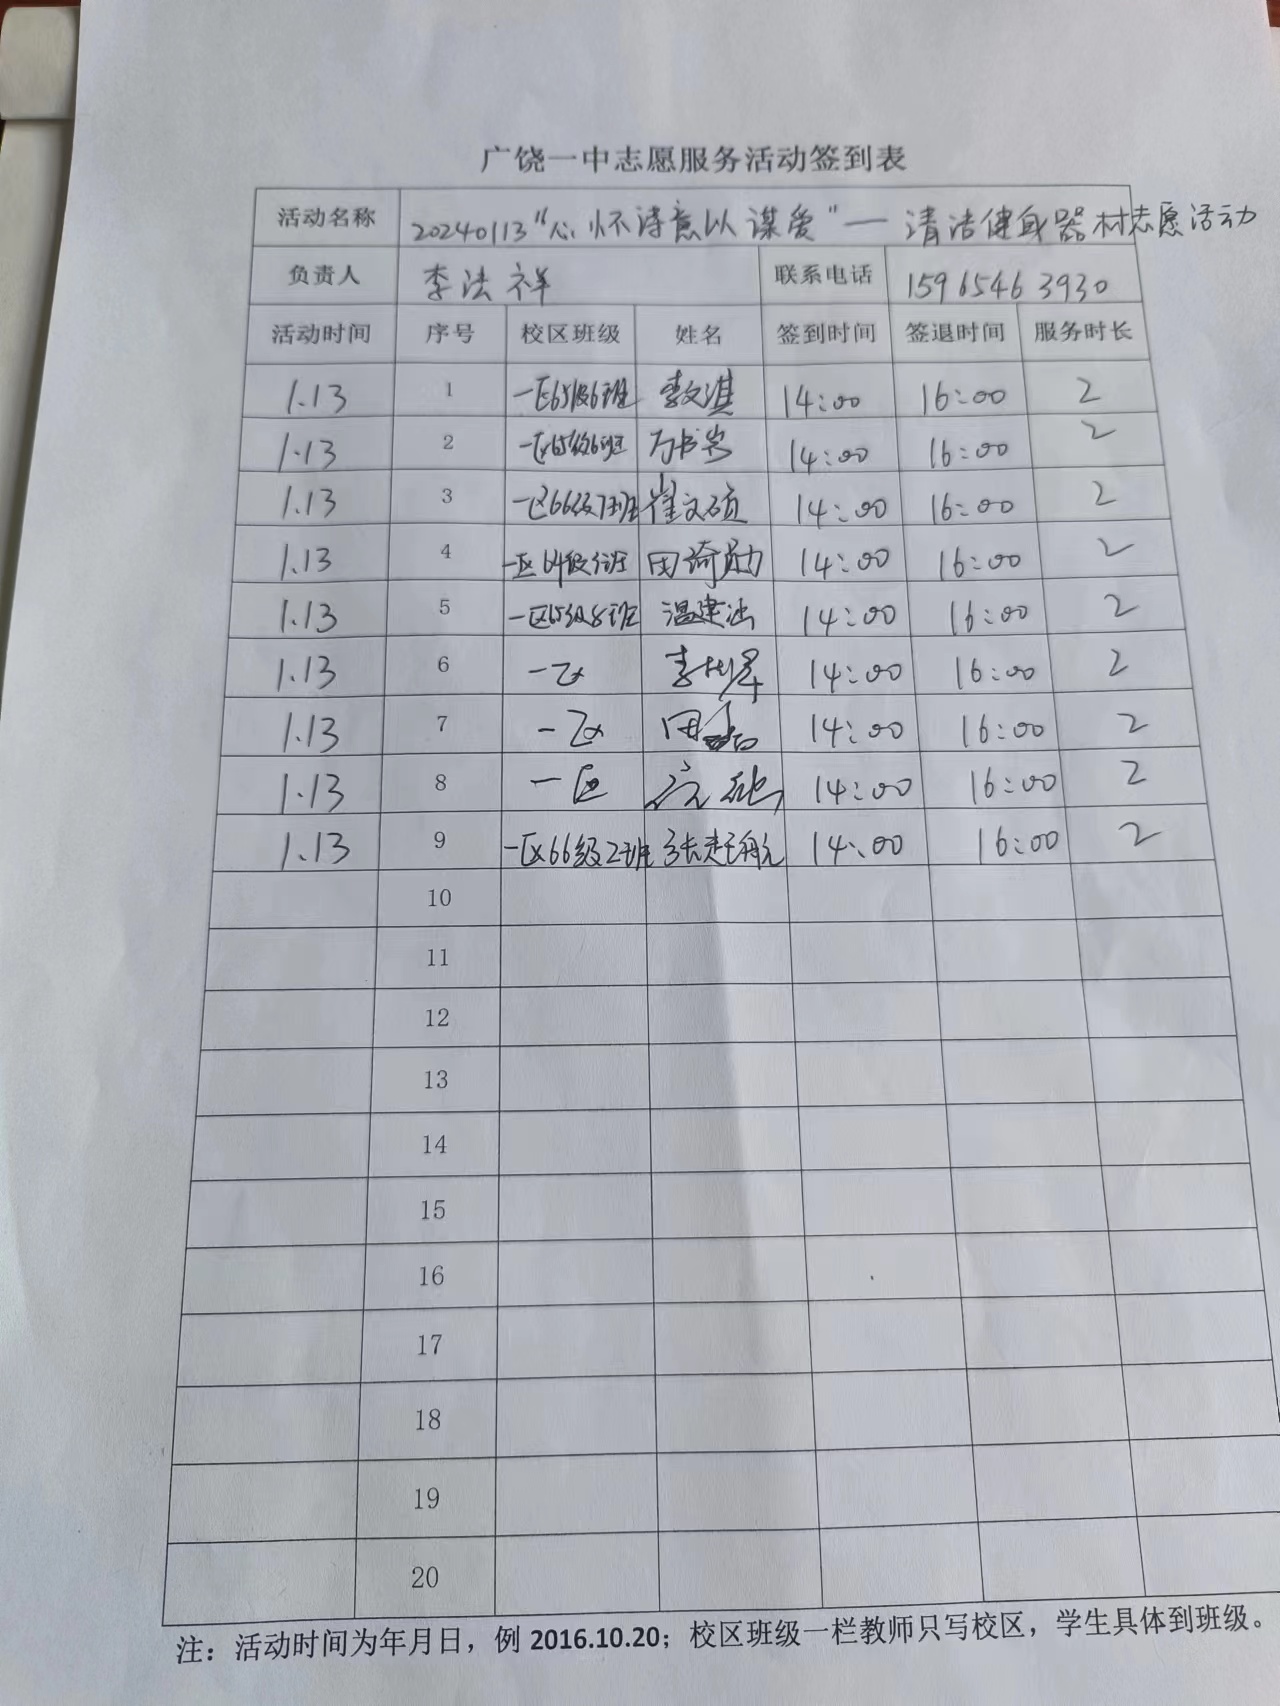 广饶一中志愿服务活动签到表
活动名称 20240113“心怀诗意以谋爱”—清洁健身器材志愿活动
负责人 李法祥 联系电话 15965463930
活动时间 序号 校区班级 姓名 签到时间 签退时间 服务时长
1.13 1 一区65级6班 李文淇 14:00 16:00 2
1.13 2 一区65级6班 14:00 16:00 2
1.13 3 一区66级7班 崔文硕 14:00 16:00 2
1.13 4 一区64级 班 田琦勋 14:00 16:00 2
1.13 5 一区65级8班 温建 14:00 16:00 2
1.13 6 一区 李 14:00 16:00 2
1.13 7 一区 田 14:00 16:00 2
1.13 8 一区 14:00 16:00 2
1.13 9 一区66级2班 张赶航 14:00 16:00 2
10
11
12
13
14
15
16
17
18
19
20
注：活动时间为年月日，例 2016.10.20；校区班级一栏教师只写校区，学生具体到班级。